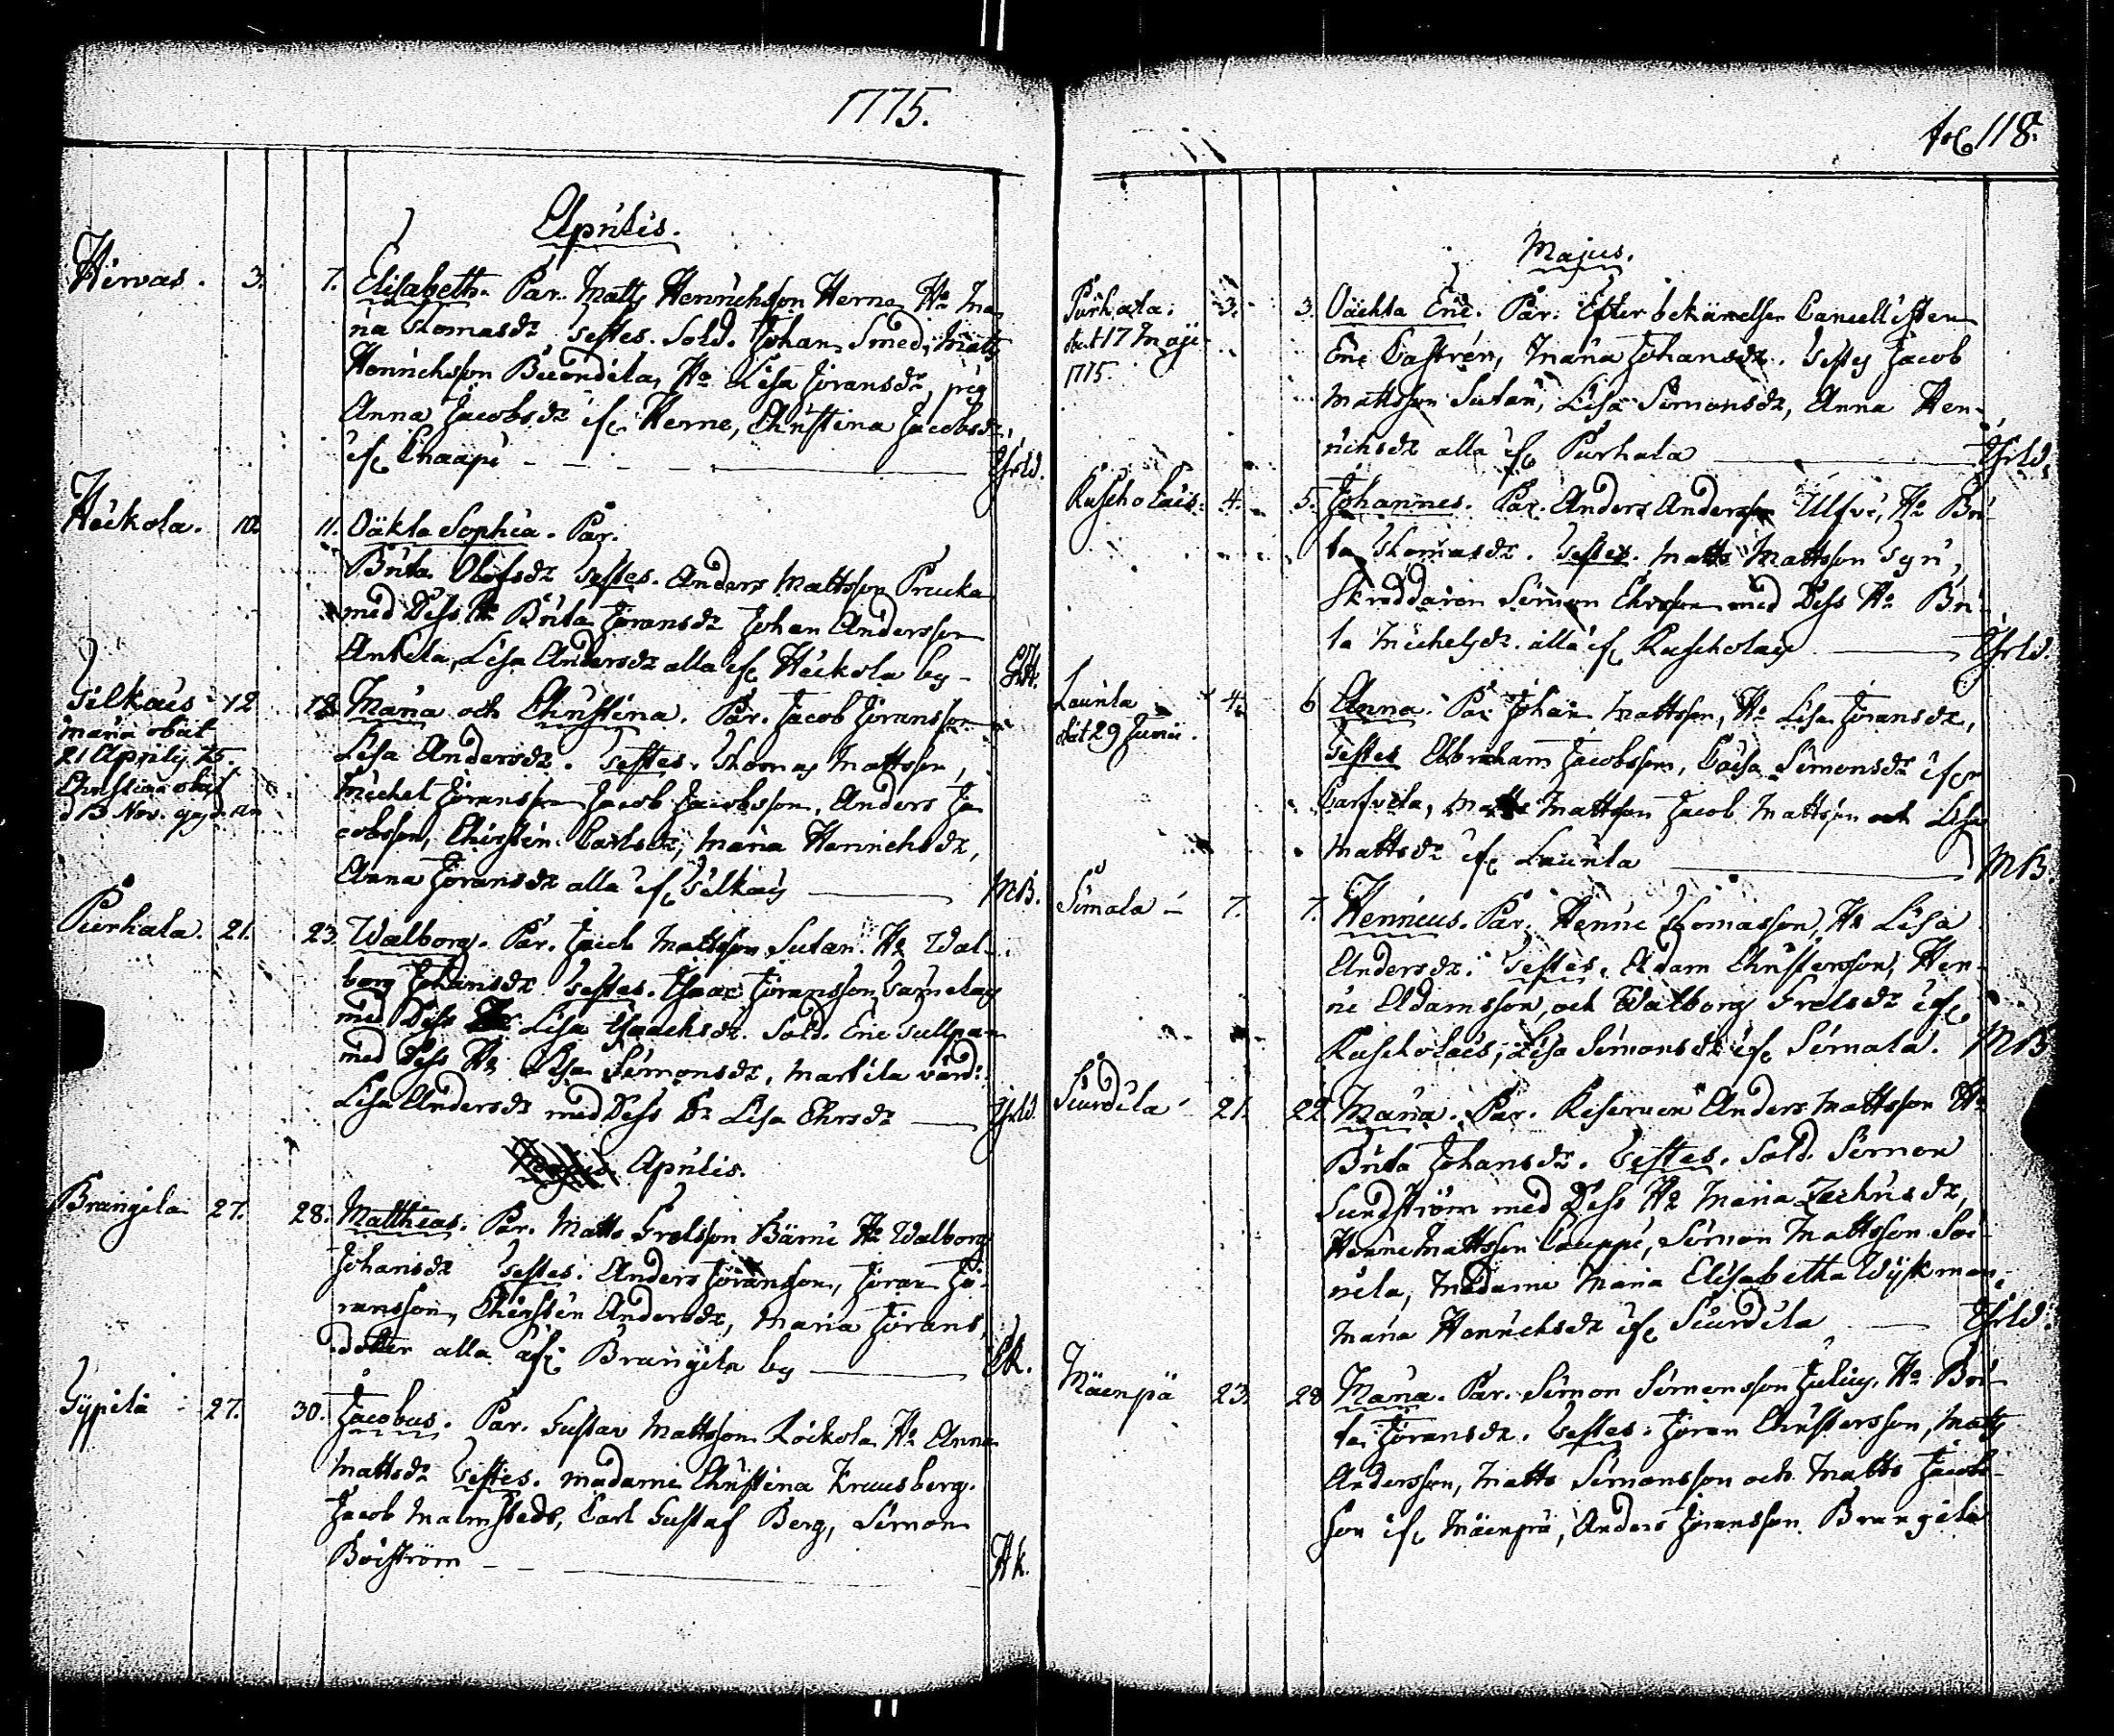 1775.
Aprilis.
Hirvas. 3. 7. Elisabeth. Par. Matts Henrichsson Herne H:u Ma
ria Thomasdr Testes. Sold. Johan Smed, Matts
Henrichsson Biördila, H:u Lisa Jöransdr, pig
Anna Jacobsdr if. Herne, Christina Jacobsdr,
if. Knaapi Ehrld.
Heickola. 10. 11. Oäkta Sophia. Par.
Brita Olofsdr Testes. Anders Mattsson Prucka
med Dess H:u Brita Jöransdr Johan Andersson
Antila, Lisa Andersdr alla if. Heickola by
Silkais 12 18. Maria och Christina. Par. Jacob Jöransson
Maria obiit
21 Aprilis 75.
Christina obiit
d 13 Nov.
Lisa Andersdr. Testes. Thomas Mattsson,
Michel Jöransson Jacob Jacobsson, Anders Ja
cobsson, Christin Carlsdr, Maria Henrichsdr,
Anna Jöransdr alla if. Silkais MB.
Purhala. 21. 23. Walborg. Par. Jacob Mattsson Sutari H:u Wal-
borg Johansdr Testes. Isaac Jöransson
med Dess Lisa Isaachsdr. Sold. Eric
med Dess H:u Lisa Simonsdr, Martila värd:
Lisa Andersdr med Dess Dr Lisa Ehrsdr Ehrld.
Aprilis.
Brangila 27. 28. Matthias. Par. Matts Frelsson Bärni H:u Walborg
Johansdr Testes. Anders Jöransson, Jöran Jö-
ransson, Christin Andersdr, Maria Jörans
dotter alla if. Brangila by EK.
Sypilä 27. 30. Jacobus. Par. Gustav Mattsson Löickola H:u Anna
Mattsdr Testes. Madame Christina Krausberg.
Jacob Malmstedt, Carl Gustaf Berg, Simon
Boiström Hk.
fol. 118.
Majus.
Purhala. 3. 3. Oäckta Eric. Par: Efter bekännelse Cancellisten
obiit 17 Maji
1775.
Eric Castrén, Maria Johansdr. Testes Jacob
Mattsson Sutari, Lisa Simonsdr, Anna Hen-
richsdr alla if. Purhala Ehrld.
Ruscholais. 4. 5. Johannes. Par. Anders Andersson Ulfvi, H:u Bri-
ta Thomasdr. Testes. Matts Mattsson Syri,
Skräddaren Simon Ehrsson med Dess H:u Bri-
ta Michelsdr. alla if. Ruscholais Ehrld.
Launla 4. 6 Anna. Par Johan Mattsson, H:u Lisa Jöransdr,
obiit 29 Junii.
Testes Abraham Jacobsson, Caisa Simonsdr ifr
Carfvila, Matts Mattsson Jacob Mattsson och Lisa
Mattsdr if. Launla MB.
Simala 7. 7. Henricus. Par. Henric Thomasson, H:u Lisa
Andersdr. Testes. Adam Christersson, Hen-
ric Adamsson, och Walborg Frelsdr if.
Ruscholais, Lisa Simonsdr if. Simala. MB
Siurdila 21. 22. Maria. Par. Reserven Anders Mattsson H:u
Brita Johansdr. Testes. Sold. Simon
Sundström med Dess H:u Maria Zachrisdr,
Henric Mattsson Cauppi, Simon Mattsson Soi-
nila, Madame Maria Elisabetha Wijkman,
Maria Henrichsdr if. Siurdila Ehrld.
Mäenpä 23. 28. Maria. Par. Simon Simonsson Julius. H:u Bri-
ta Jöransdr. Testes: Jöran Christersson, Matts
Andersson, Matts Simonsson och Matts Jacobs-
son if. Mäenpä, Anders Jöransson Brangila